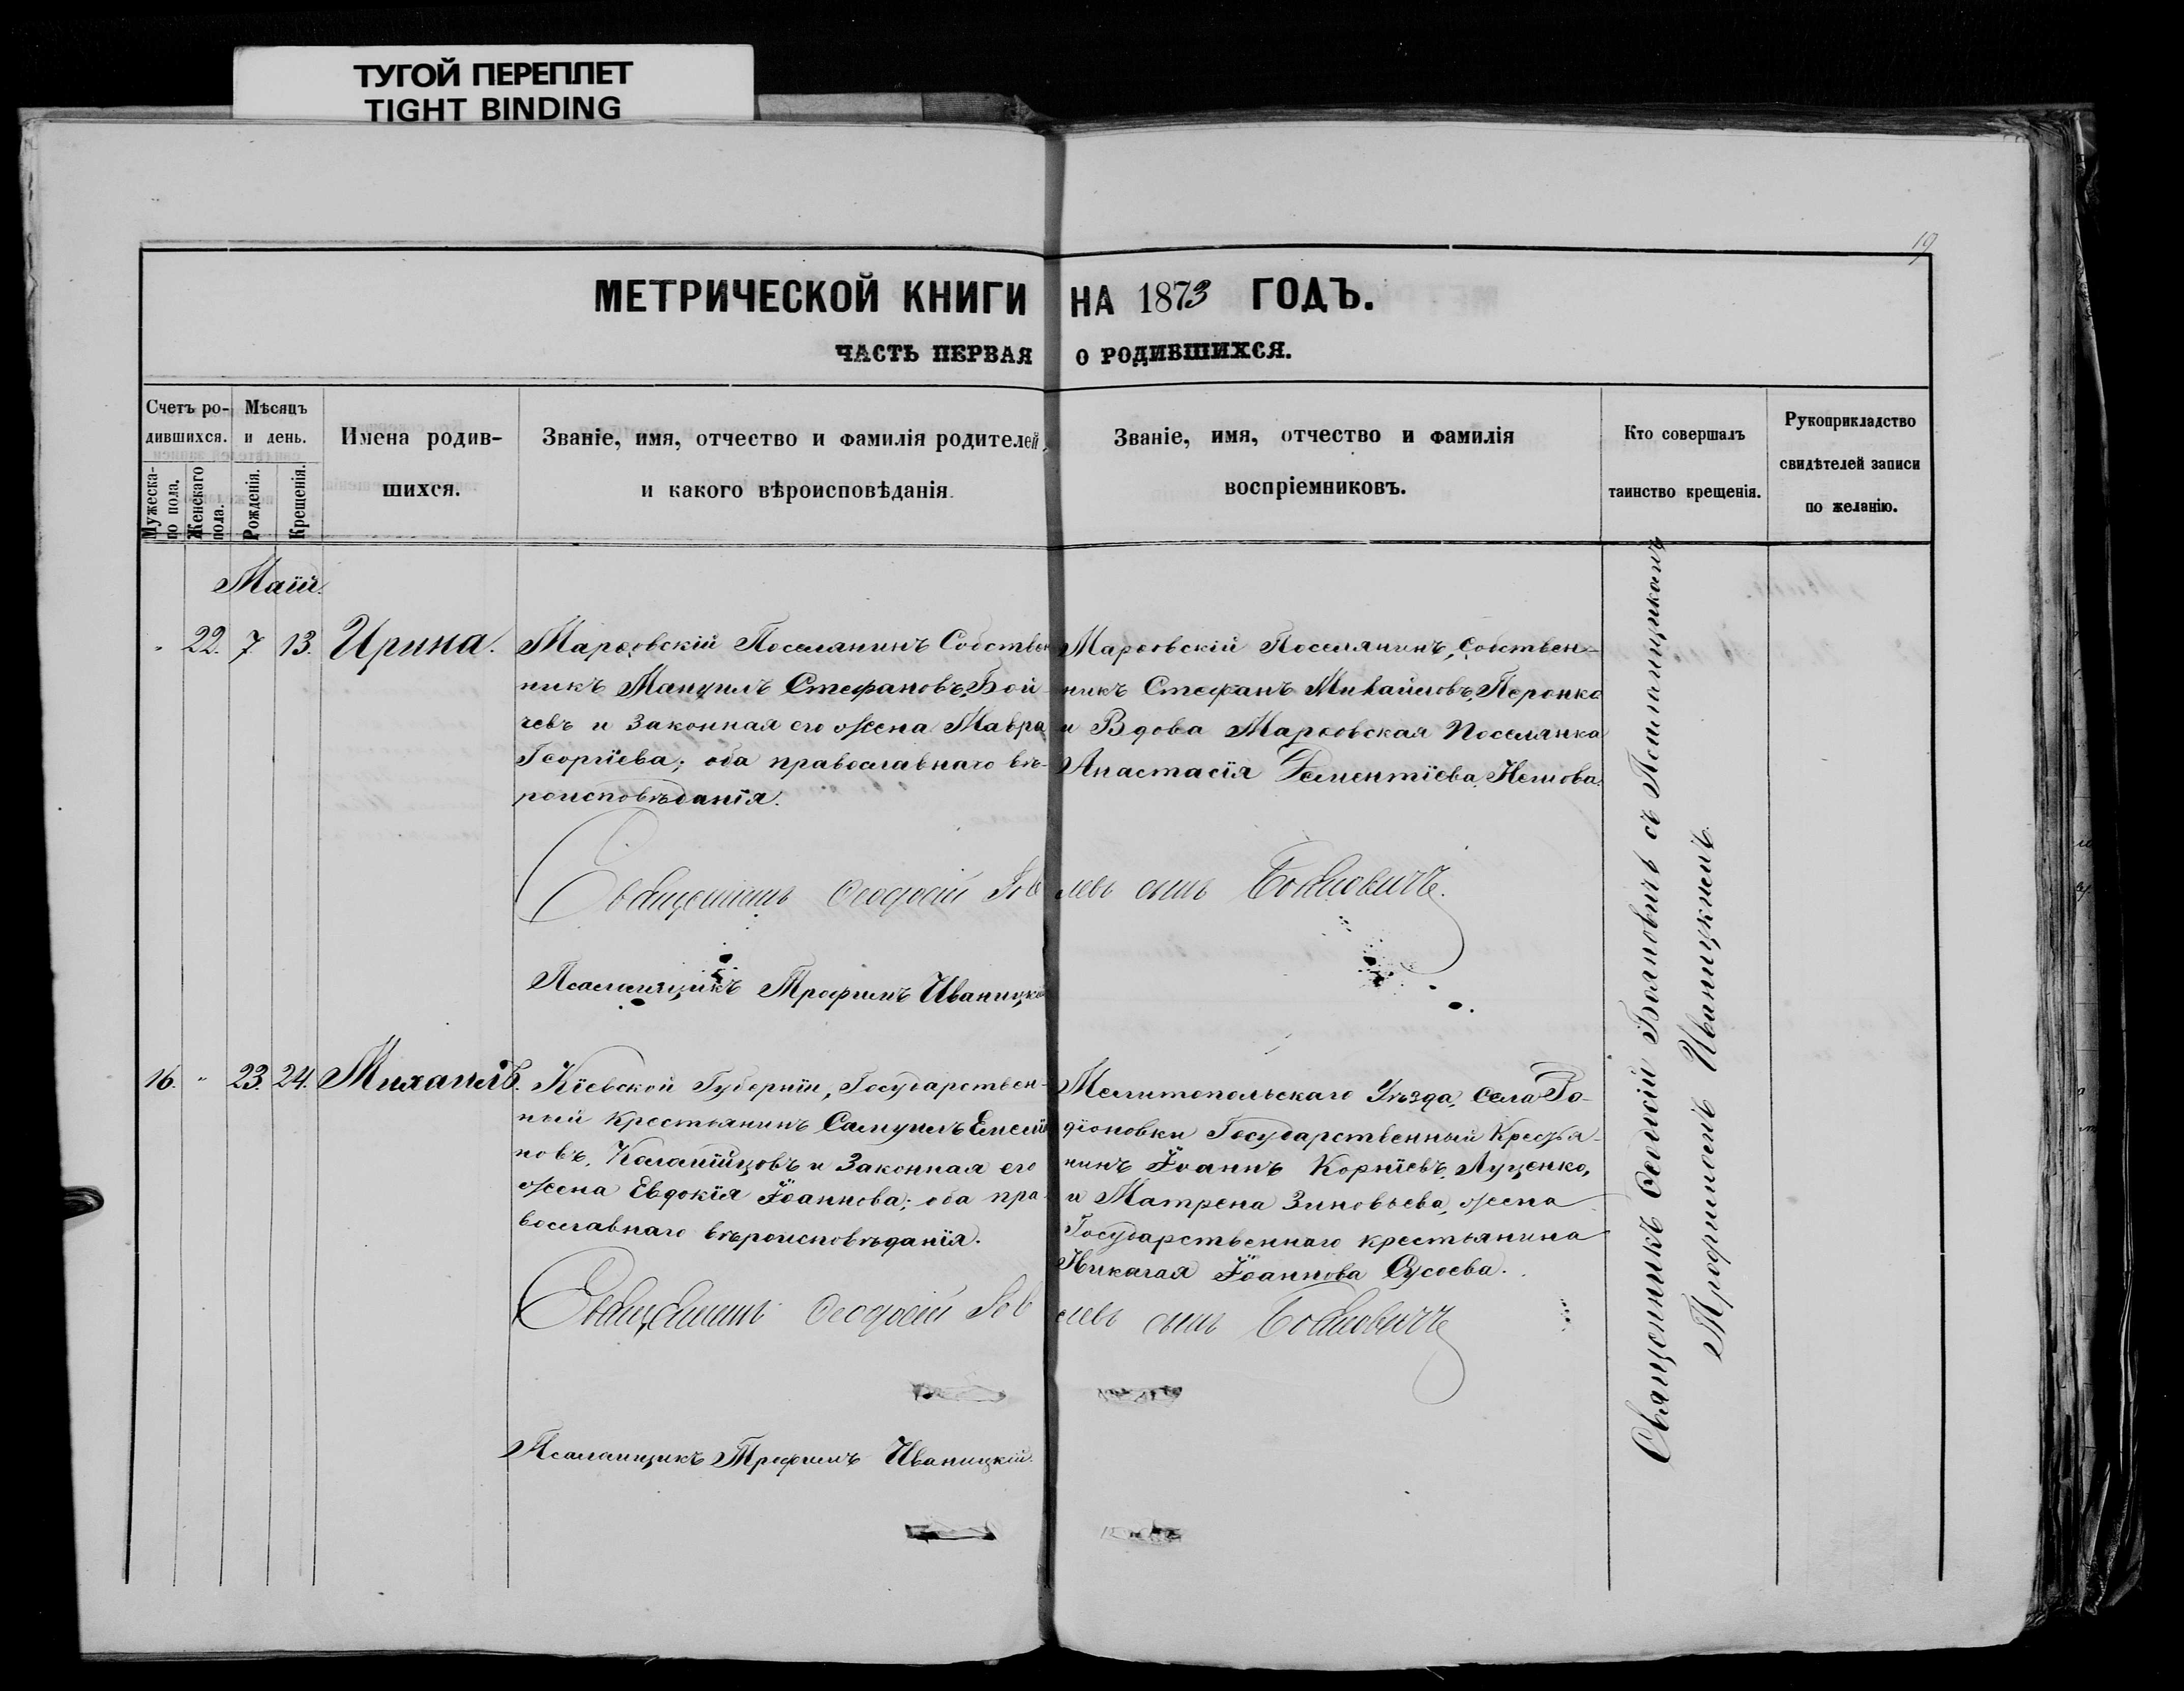 ТУГОЙ ПЕРЕПЛЕТ
TIGHT BINDING
19
МЕТРИЧЕСКОЙ КНИГИ НА 1873 ГОДЪ.
ЧАСТЬ ПЕРВАЯ О РОДИВШИХСЯ.
Счетъ ро-
дившихся.
Мужеска-
го пола.
Женскаго
пола.
Мѣсяцъ
и день.
Рожденія.
Крещенія.
Имена родив-
шихся.
Званіе, имя, отчество и фамилія родителей,
и какого вѣроисповѣданія.
Званіе, имя, отчество и фамилія
воспріемниковъ.
Кто совершалъ
таинство крещенія.
Рукоприкладство
свидѣтелей записи
по желанію.
Маій.
22. 7. 13. Ирина.
Марѳовскій Поселянинъ Собствен
никъ Мануилъ Стефановъ, Бой-
чевъ и Законная его жена Мавра
Георгіева; оба православнаго вѣ-
роисповѣданія.
Марѳовскій Поселянинъ, Собствен-
никъ Стефанъ Михайловъ, Перонко
и Вдова Марѳовская Поселянка
Анастасія Дементіева,
Священникъ Ѳеодосій сынъ Бояновичъ.
Псаломщикъ Трофимъ Иваницкій
16. 23. 24. Михаилъ.
Кіевской Губерніи, Государствен-
ный Крестьянинъ Самуилъ
новъ, и Законная его
жена Евдокія Іоаннова; оба пра-
вославнаго вѣроисповѣданія.
Мелитопольскаго Уѣзда, Села Ро-
діоновки Государственный Крестья-
нинъ Іоаннъ Корніевъ, Луценко,
и Матрена Зиновьева, жена
Государственнаго крестьянина
Николая Іоаннова Сусоева.
Священникъ Ѳеодосій сынъ Бояновичъ
Псаломщикъ Трофимъ Иваницкій.
Священникъ Ѳеодосій Бояновичъ съ Псаломщикомъ
Трофимомъ Иваницкимъ.